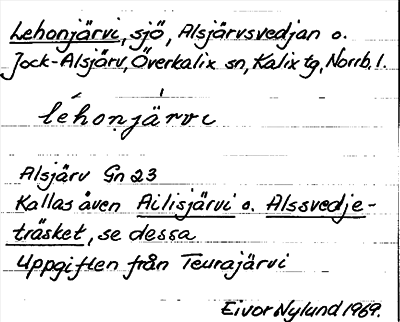 Lehonjärvi, sjö, Alsjärvsvedjan o.
Jock-Alsjärv, Överkalix sn, Kalix tg, Norrb. l.
léhonjärvi
Alsjärv Gn 23
Kallas även Ailisjärvi o. Alssvedje-
träsket, se dessa
Uppgiften från Teurajärvi
Eivor Nylund 1969.